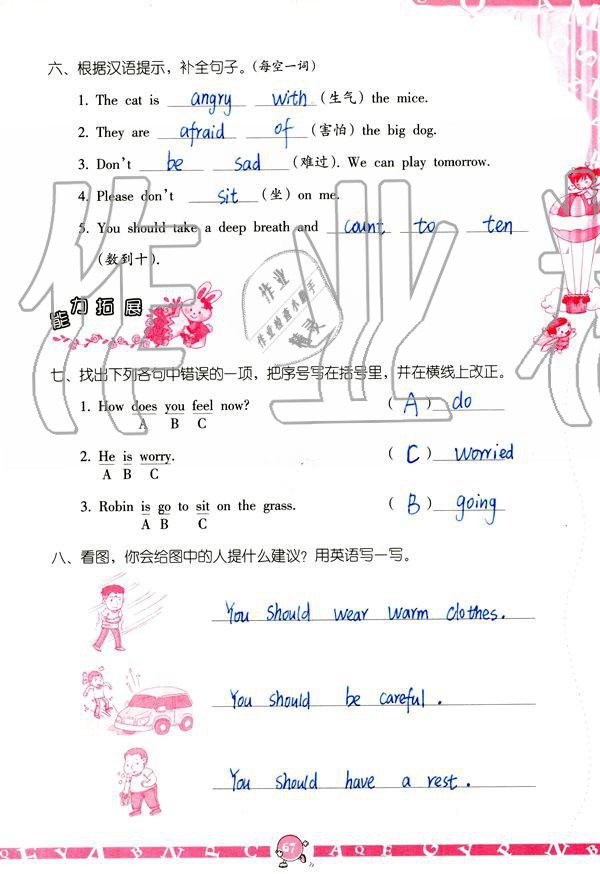 六、根据汉语提示，补全句子。(每空一词)
1. The cat is angry with (生气) the mice.
2. They are afraid of (害怕) the big dog.
3. Don't be sad (难过). We can play tomorrow.
4. Please don't sit (坐) on me.
5. You should take a deep breath and count to ten
(数到十).
能力拓展
七、找出下列各句中错误的一项，把序号写在括号里，并在横线上改正。
1. How does you feel now? ( A ) do
A B C
2. He is worry. ( C ) worried
A B C
3. Robin is go to sit on the grass. ( B ) going
A B C
八、看图，你会给图中的人提什么建议？用英语写一写。
You should wear warm clothes.
You should be careful.
You should have a rest.
67